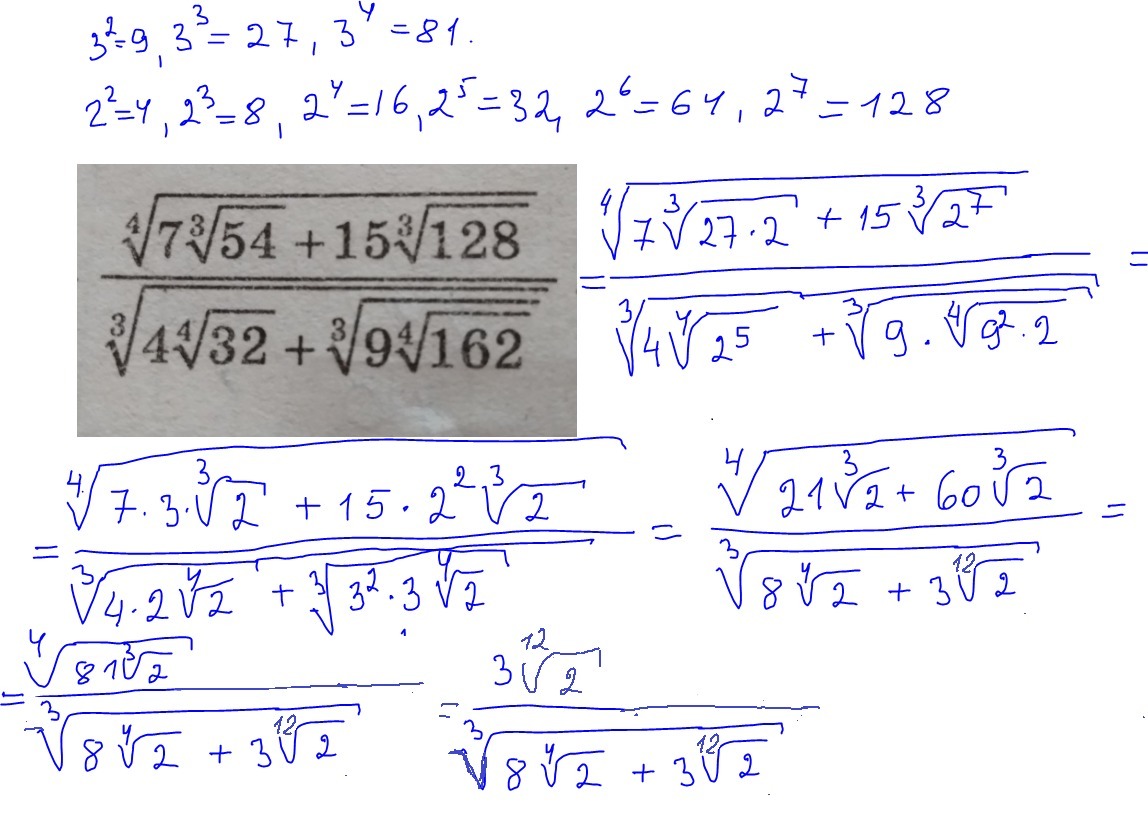 3²=9, 3³=27, 3⁴=81.
2²=4, 2³=8, 2⁴=16, 2⁵=32, 2⁶=64, 2⁷=128
\frac{\sqrt[4]{7\sqrt[3]{54}+15\sqrt[3]{128}}}{\sqrt[3]{4\sqrt[4]{32}+\sqrt[3]{9\sqrt[4]{162}}}} = \frac{\sqrt[4]{7\sqrt[3]{27·2}+15\sqrt[3]{2^7}}}{\sqrt[3]{4\sqrt[4]{2^5}+\sqrt[3]{9·\sqrt[4]{9^2·2}}}} =
= \frac{\sqrt[4]{7·3·\sqrt[3]{2}+15·2^2\sqrt[3]{2}}}{\sqrt[3]{4·2\sqrt[4]{2}+\sqrt[3]{3^2·3\sqrt[4]{2}}}} = \frac{\sqrt[4]{21\sqrt[3]{2}+60\sqrt[3]{2}}}{\sqrt[3]{8\sqrt[4]{2}+3\sqrt[12]{2}}} =
= \frac{\sqrt[4]{81\sqrt[3]{2}}}{\sqrt[3]{8\sqrt[4]{2}+3\sqrt[12]{2}}} = \frac{3\sqrt[12]{2}}{\sqrt[3]{8\sqrt[4]{2}+3\sqrt[12]{2}}}